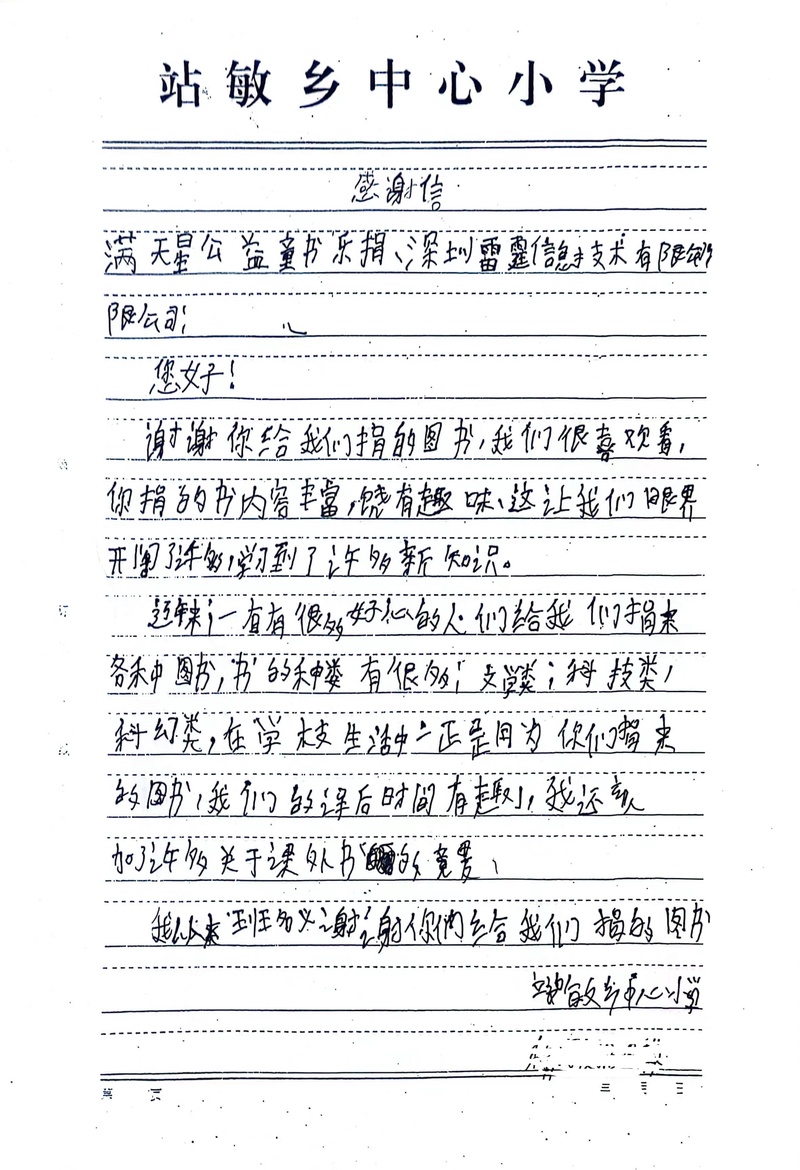 站敏乡中心小学
感谢信
满天星公益童书乐捐、深圳雷霆信息技术有限公司
限公司:
您好!
谢谢你给我们捐的图书,我们很喜欢看,
你捐的书内容丰富,饶有趣味、这让我们眼界
开阔了许多,学习到了许多新知识。
近年来,一直有很多好心的人们给我们捐来
各种图书,书的种类有很多;文学类;科技类,
科幻类,在学校生活中,正是因为你们捐来
的图书,我们的课后时间有趣,我还
加了许多关于课外书的竞赛、
我以来班名义谢谢你们给我们捐的图书
站敏乡中心小学
第 页